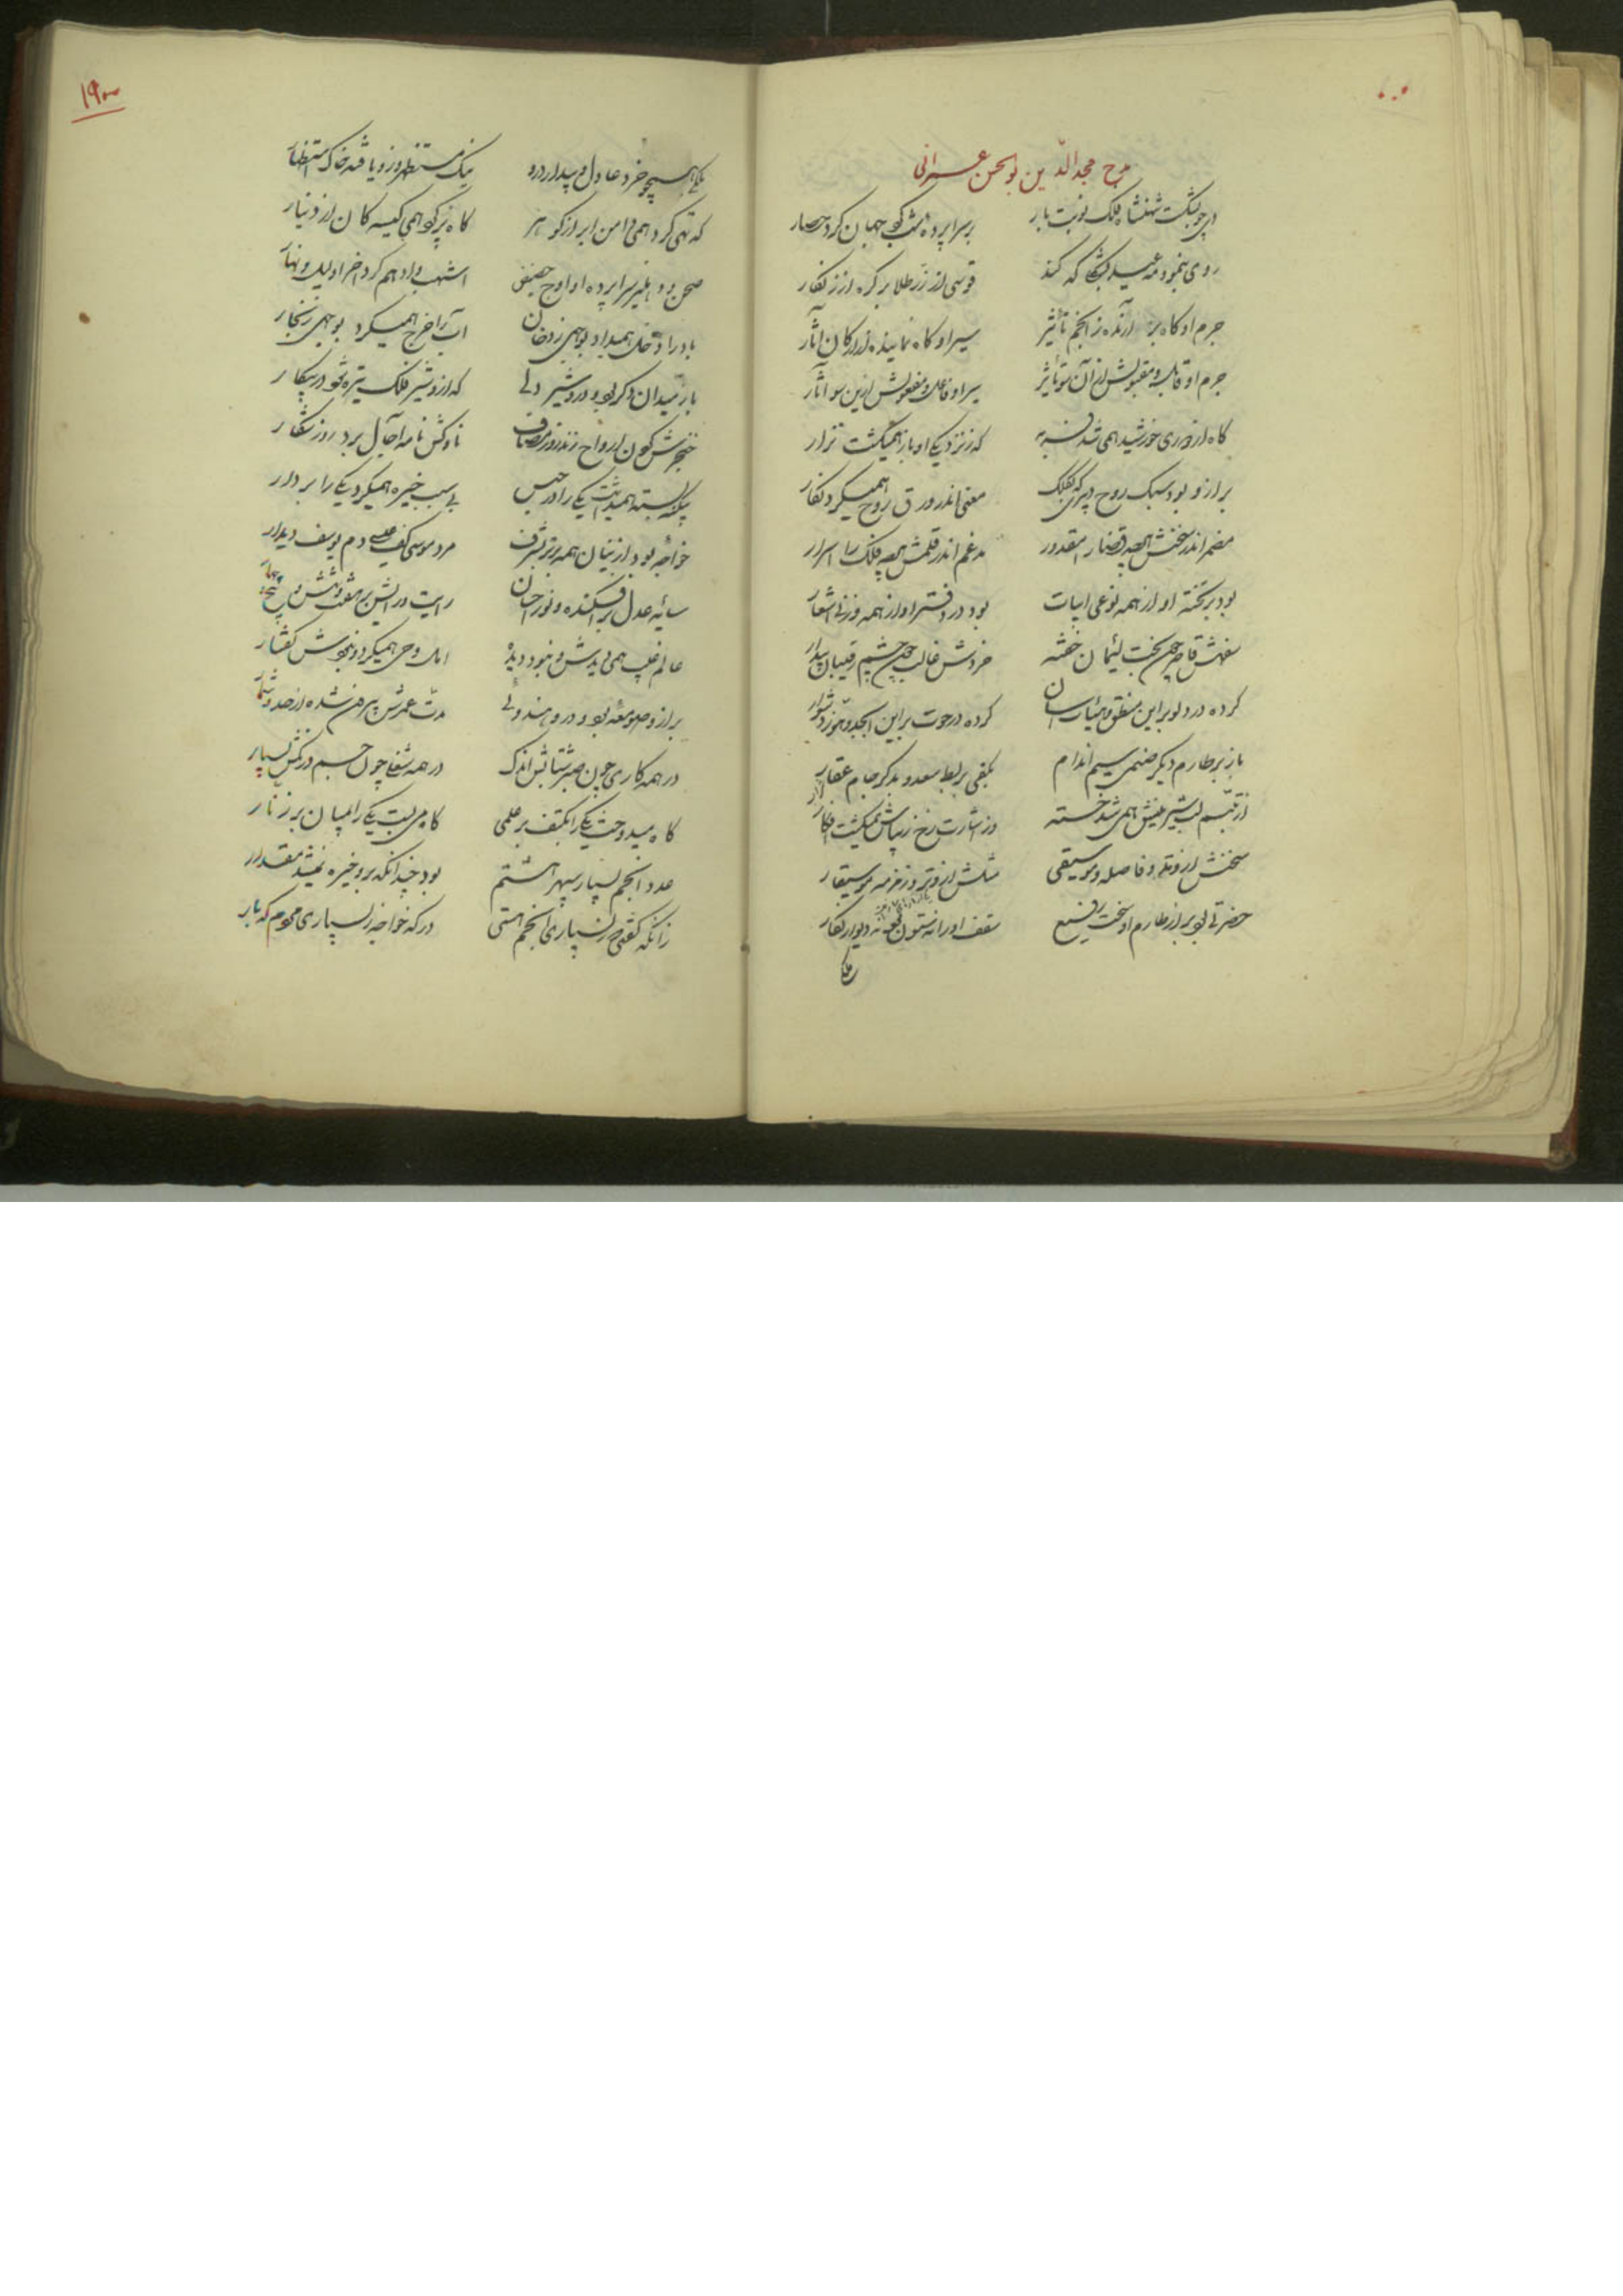 مدح مجد الدین بوالحسن عمرانی
دی چو بشکست شهنشاه فلک نوبت بار
بر سراپرده شب کوی جهان کرد حصار
روی بنمود مه عید که کند
قوسی از زر طلا بر کره از زنگار
جرم او گاه پذیرنده ز انجم تأثیر
سیر او گاه نماینده در ارکان آثار
جرم او قابل و مقبولش از آن سو تأثیر
سیر او فاعل و مفعولش ازین سو آثار
گاه از دوری خورشید همی شد فربه
که ز نزدیکی او باز همیگشت نزار
برتر ازو بود سبک روح دبیری که بکلک
معنی اندر ورق روح همیکرد نگار
مضمر اندر سخنش همه قضا را مقدور
مدغم اندر قلمش همه فلک را اسرار
بود بر تخته او از همه نوعی ابیات
بود در دفتر او از همه وزنی اشعار
سفهش قاصر چون بخت لئیمان خفته
خردش غالب چون چشم رقیبان بیدار
کرده در دلو براین منطق و هیئات آسان
کرده در حوت براین ابجد و هوز دشوار
باز بر طارم دیگر صنمی سیم اندام
بکفی بربط سعد و بدگر جام عقار
از تبسم لب شیرینش همی شد خسته
وز اشارت رخ زیباش همیگشت افکار
سخنش از وتد و فاصله و موسیقی
مثلش از وتر و زخمه موسیقار
حضرتی بود برتر از طارم او سخت رفیع
سقف او را نه ستون بود و نه دیوار بکار
ملکی همچو خرد عادل و بیدار درو
نیک مستظهر ازو یافته خاک استظهار
که تهی کرد همی دامن ابر از گوهر
گاه پر کرد همی کیسه کان از دینار
صحن و دهلیز سراپرده او اوج حضیض
اشهب و ادهم کرد آخر او لیل و نهار
باد را دخل همیداد بوجهی ز دخان
آب را خرج همیکرد بوجهی ز بخار
باز میدان دگر بود درو شیر دلی
که ازو شیر فلک تیره شود در پیکار
خنجرش گردن ارواح زند روز مصاف
ناوکش نامه آجال برد روز شکار
بیگنه بسته همیداشت یکی را در حبس
بی سبب خیره همیکرد یکی را بر دار
خواجه بود ازینان همه برتر بشرف
مرد موسی کف عیسی دم یوسف دیدار
سایه عدل پراکنده و نور احسان
رایت رایش بر هفت و شش و پنج و چهار
عالم غیب همی دیدش و نبود دیده
املا وحی همیکرد و نبودش گفتار
برتر ازو صومعه بود و درو هندوئی
مدت عمرش بیرون شده از حد و شمار
در همه کاری چون صبر شتابش اندک
در همه شغلی چون حسم درنگش بسیار
گاه میدوخت یکی را بکتف بر علمی
گاه می بست یکی را بمیان بر زنار
عدد انجم بسیار سپهر هشتم
بود چندانکه بر و خیره نمیشد مقدار
زانکه گفتی ز بسیاری انجم هستی
درگه خواجه ز بسیاری مردم گه بار